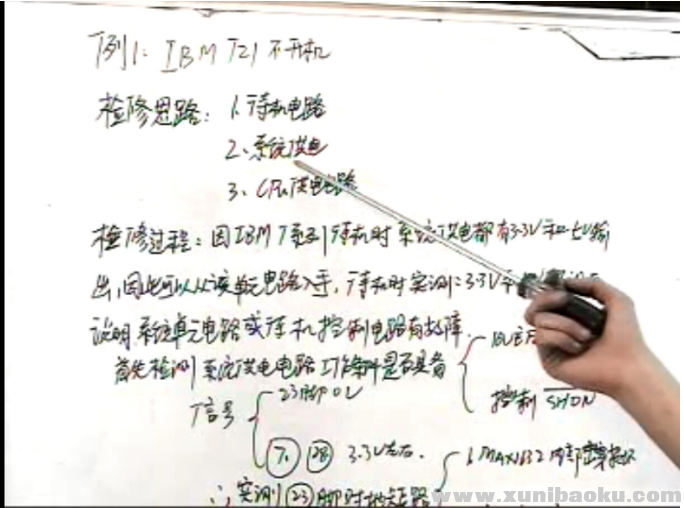 例1: IBM T21 不开机
检修思路: 1. 待机电路
2、系统供电
3、CPU供电电路
检修过程: 因IBM T系列待机时系统供电都有3.3V和5V输
出,因此可以从该单元电路入手, 待机时实测: 3.3V
说明系统单元电路或待机控制电路有故障.
首先检测系统供电电路工作条件是否具备
控制 SHDN
信号
23脚 0V
⑦. ㉘ 3.3V左右.
1. MAX1632 内部
∴ 实测 ㉓ 脚对地短路
www.xunibaoku.com